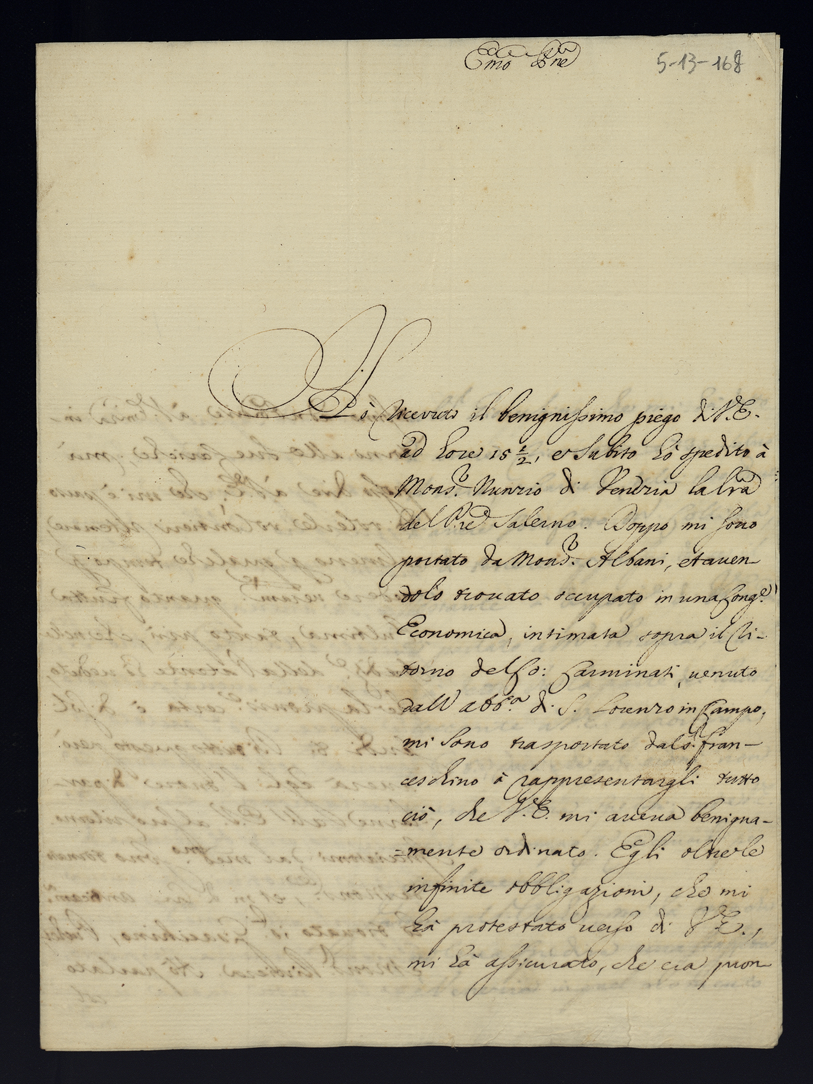 Em̃o P̃re
5-13-168
Hò riceuuto il benignissimo piego di V.E.
ad hore 15 1/2, e subito hò spedito à
Mons.r Nunzio di Venezia la lr̃a
del P̃re Salerno. Doppo mi sono
portato da Mons.r Albani, et auen-
dolo trouato occupato in una Cong.e
Economica, intimata sopra il ri-
torno del Carminati, uenuto
dall'abb.a di S. Lorenzo in Campo,
mi sono trasportato dal s.r fran-
ceschino à rappresentargli tutto
ciò, che V.E. mi aueua benigna-
-mente ordinato. Egli oltre le
infinite obbligazioni, che mi
hà protestato uerso di V.E.,
mi hà assicurato, che era pron-